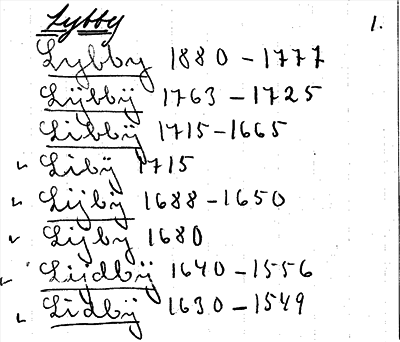 Lybby 1.
Lybby 1880 – 1777
Lÿbbÿ 1763 – 1725
Libbÿ 1715 – 1665
Libÿ 1715
Lijbÿ 1688 – 1650
Lijby 1680
Lijdbÿ 1640 – 1556
Lidbÿ 1630 – 1549